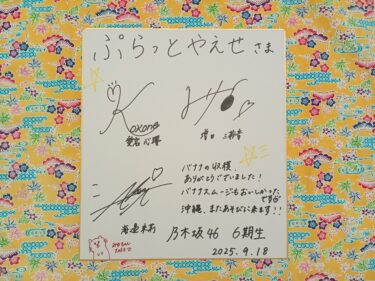 ぷらっとやえせ さま
Kokone
愛宕 心響
増田 三莉音
バナナの収穫
ありがとうございました!
バナナスムージもおいしかった
です
沖縄、またあそびに来ます!!
海邉 朱莉
乃木坂46 6期生
2025.9.18